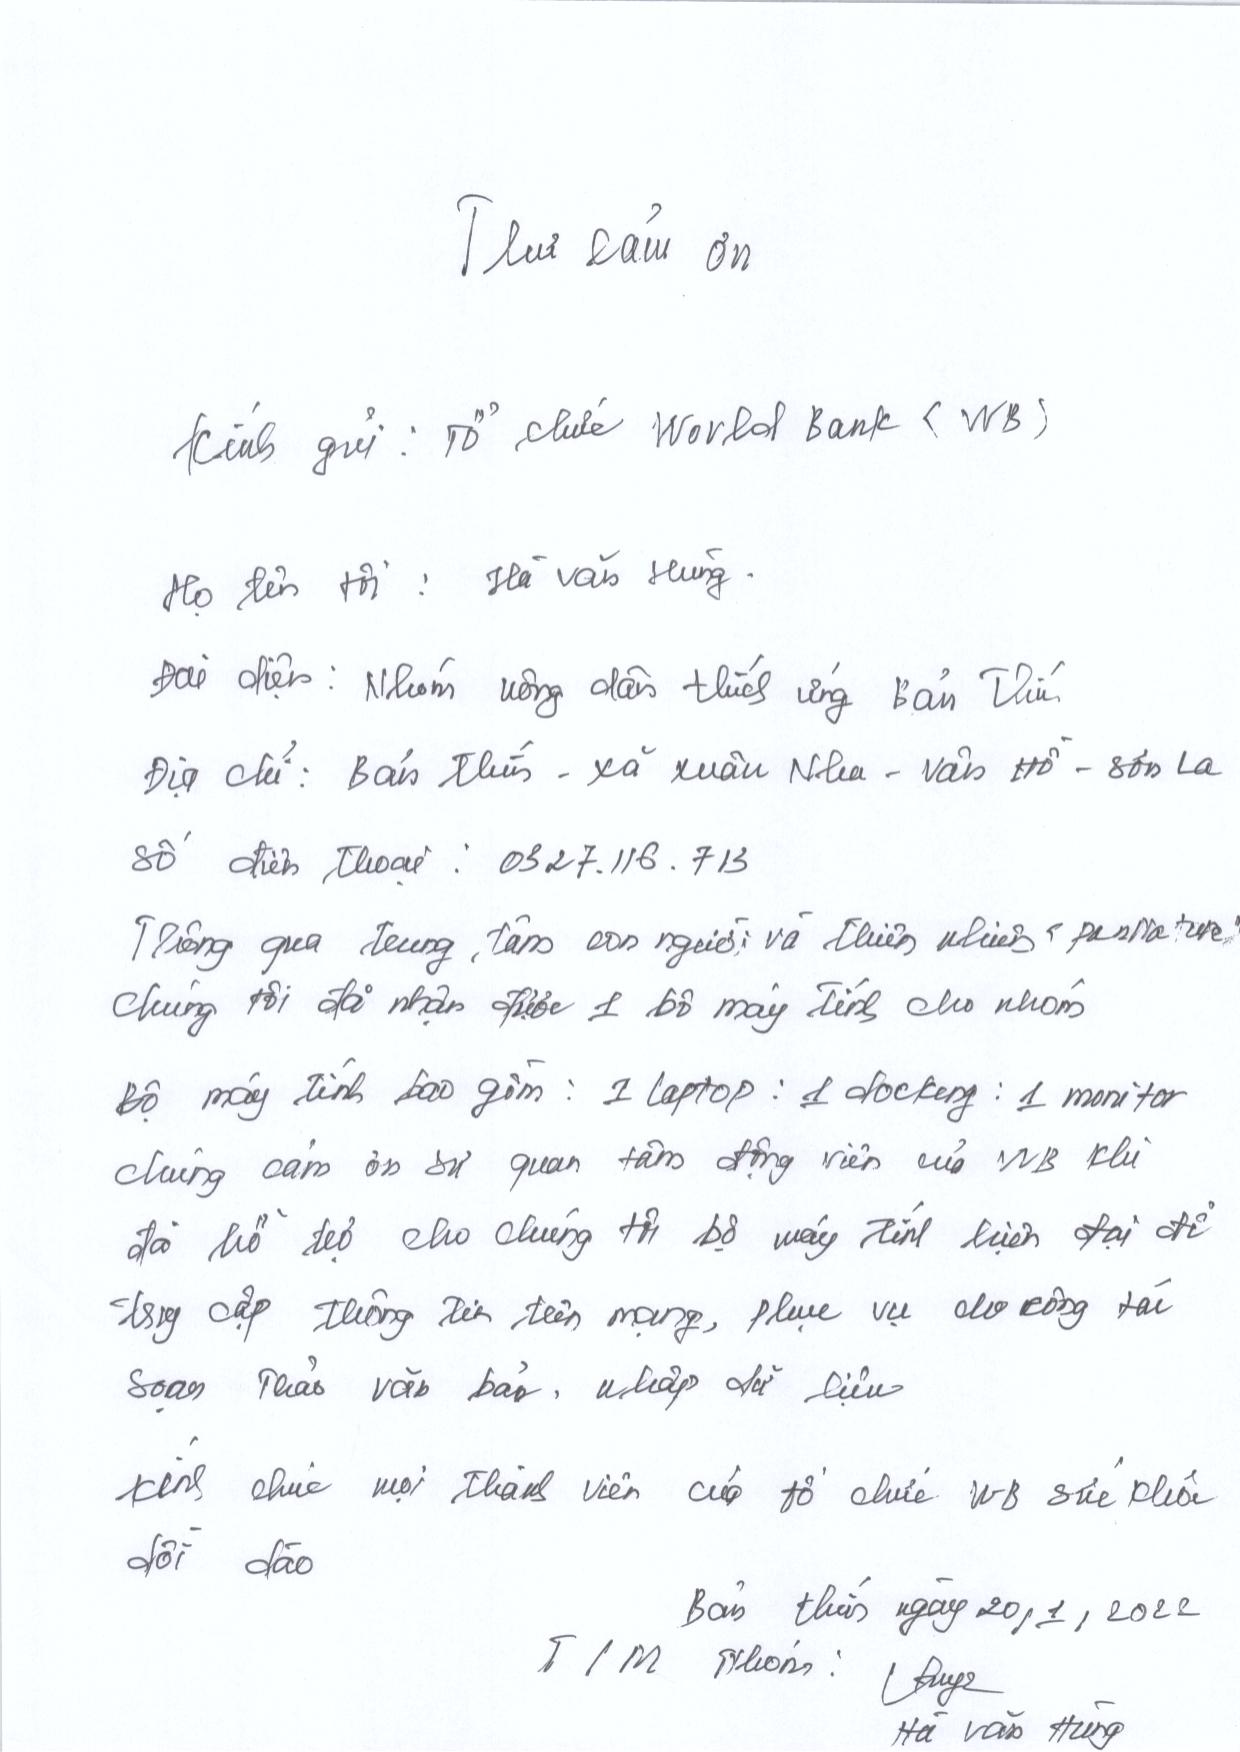 Thư cảm ơn
Kính gửi: Tổ chức World Bank (WB)
Họ tên tôi: Hà Văn Hùng.
Đại diện: Nhóm nông dân thích ứng Bản Thín
Địa chỉ: Bản Thín - xã Xuân Nha - Vân Hồ - Sơn La
Số điện thoại: 0327.116.713
Thông qua trung tâm con người và thiên nhiên (pannature)
chúng tôi đã nhận được 1 bộ máy tính cho nhóm
Bộ máy tính bao gồm: 1 laptop: 1 docking: 1 monitor
chúng cảm ơn sự quan tâm động viên của WB khi
đã hỗ trợ cho chúng tôi bộ máy tính hiện đại để
truy cập thông tin trên mạng, phục vụ cho công tác
soạn thảo văn bản, nhập dữ liệu
Kính chúc mọi thành viên của tổ chức WB sức khỏe
dồi dào
Bản Thín ngày 20, 1, 2022
T/M Nhóm:
Hà Văn Hùng